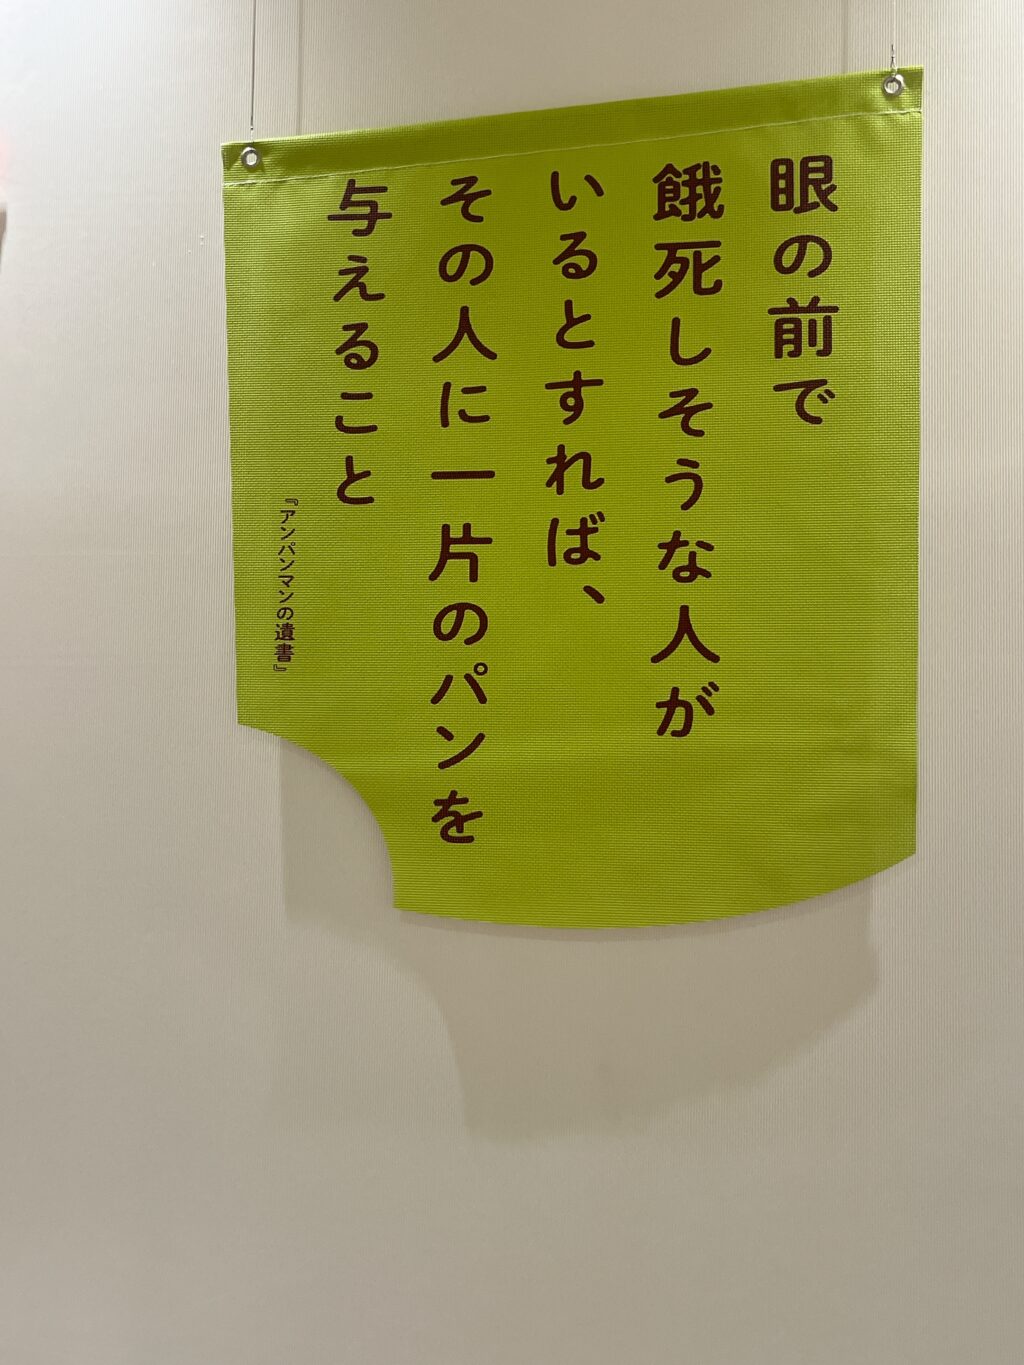 眼の前で
餓死しそうな人が
いるとすれば、
その人に一片のパンを
与えること
『アンパンマンの遺書』